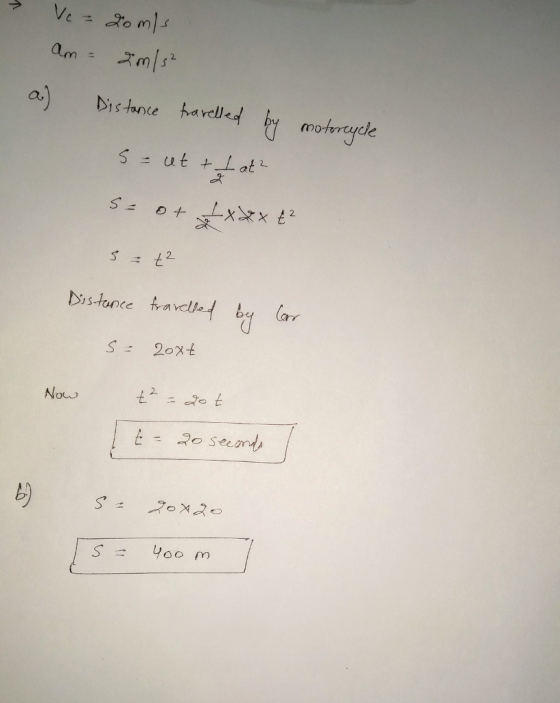 → Vc = 20 m/s
am = 2m/s²
a) Distance travelled by motorcycle
S = ut + 1/2 at²
S = 0 + 1/2 x 2 x t²
S = t²
Distance travelled by Car
S = 20xt
Now t² = 20 t
t = 20 seconds
b) S = 20x20
S = 400 m